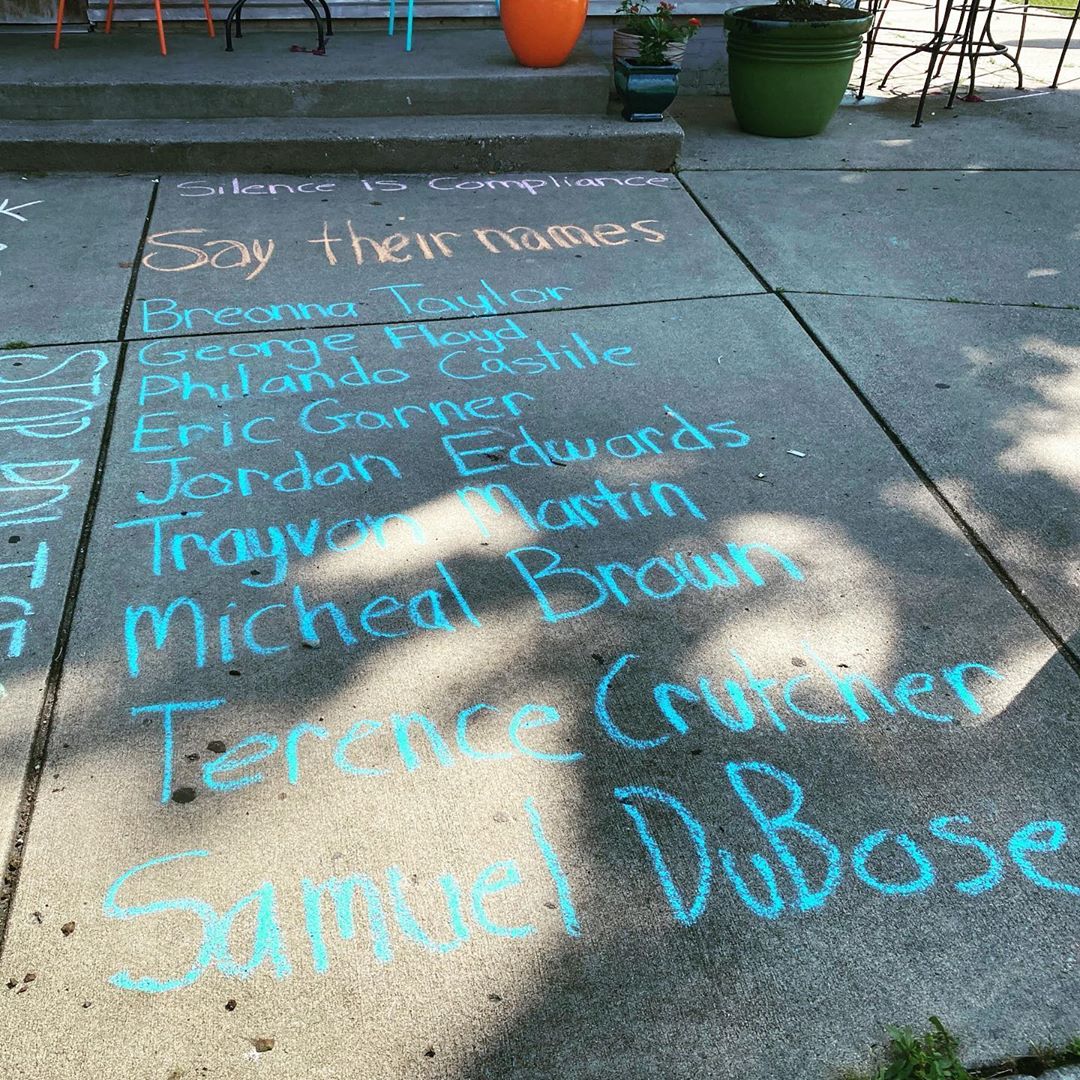 Silence is Compliance
Say their names
Breanna Taylor
George Floyd
Philando Castile
Eric Garner
Jordan Edwards
Trayvon Martin
Micheal Brown
Terence Crutcher
Samuel DuBose
STOP